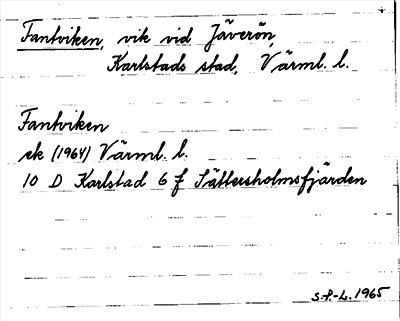 Fantviken, vik vid Jäverön,
Karlstads stad, Värml. l.
Fantviken
ek (1964) Värml. l.
10 D Karlstad 6 f Sättersholmsfjärden
S.P.-L. 1965